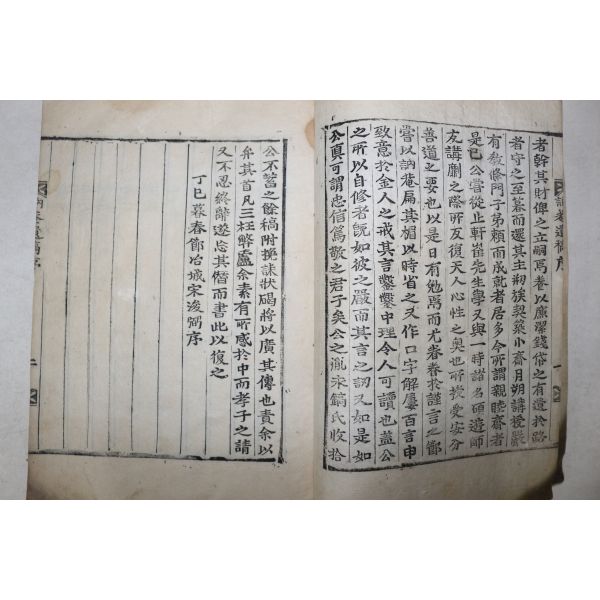 訥菴遺稿序
一
者幹其財俾之立嗣焉養以廉潔錢貸之有遺於路
者守之至暮而還其主糾族契築小齋月朔講授嚴
有敎條門子弟賴而成就者居多今所謂親睦齋者
是已公嘗從止軒崔先生學又與一時諸名碩遊師
友講劘之際所反復天人心性之奧也所授受安分
善道之要也以是日有勉焉而尤眷眷於謹言之節
嘗以訥菴扁其楣以時省之又作口字解屢百言申
致意於金人之戒其言鑿鑿中理令人可讀也蓋公
之所以自修者旣如彼之嚴而其言之訒又如是如
公眞可謂忠信篤敬之君子矣公之胤來鎬氏收拾
公不蓄之餘稿附挽誄狀碣將以廣其傳也責余以
弁其首凡三枉弊廬余素有所感於中而孝子之請
又不忍終辭遂忘其僭而書此以復之
丁巳暮春節冶城宋浚弼序
訥菴遺稿序
二